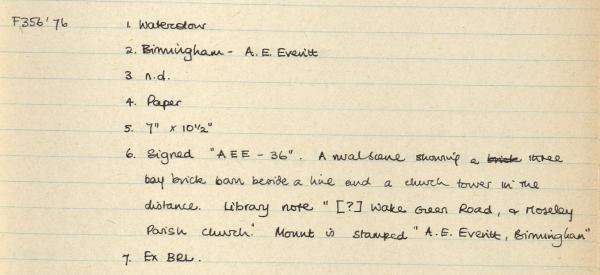 F356'76
1. Watercolour
2. Birmingham - A. E. Everitt
3 n.d.
4. Paper
5. 7" x 10 1/2"
6. Signed "AEE - 36". A rural scene showing a brick three
bay brick barn beside a lane and a church tower in the
distance. Library note "[?] Wake Green Road, & Moseley
Parish Church." Mount is stamped "A.E. Everitt, Birmingham"
7. Ex BRL.